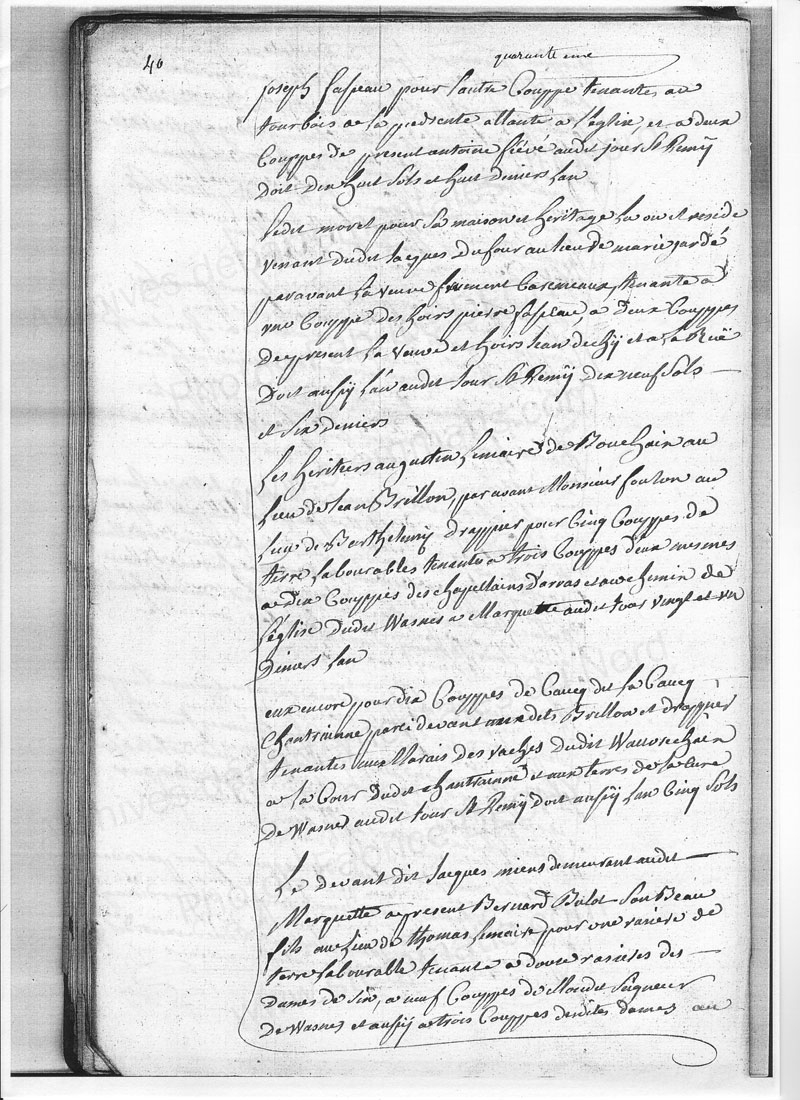 40
quarante une
joseph faspeau pour lautre Couppe tenantes au
tourbois de la piedsente allante a l'église, et a deux
Couppes de present antoine fiévé audit jour St Remÿ
Doit Dix huit sols et huit deniers Lan
Ledit morel pour sa maison et héritage La ou il reside
venant dudit Jacques Dufour au lieu de marie jardé
paravant La veuve froment Caremeaux, tenante a
une Couppe des hoirs pierre faspeau, a Deux Couppes
De present La veuve et hoirs Jean dechÿ et a La Ruë
Doit aussÿ Lan audit Jour St Remÿ dix neuf sols
et six deniers
Les héritiers augustin Lemaire de Bouchain au
Lieu de Jean Brillon, paravant Monsieur foulon au
Lieu de Barthelemÿ Drappier pour Cinq Couppes de
terre Labourables tenantes a trois Couppes d'eux mesmes
a dix Couppes des chapellains Darras et au chemin de
L'église Dudit Wasnes a Marquette audit Jour vingt et un
Deniers Lan
eux encore pour dix Couppes de Caucq dit La Caucq
Chantrainne parci devant auxdits Brillon et Drappier
tenantes aux Marais des vaches Dudit
a La Cour Dudit Chantrainne et aux terres de la Cure
De Wasnes audit Jour St Remÿ Doit aussÿ Lan Cinq sols
Le devant dit Jacques miens demeurant audit
Marquette apresent Bernard Bulot son Beau
fils au lieu de thomas Lemaire pour une rasiere de
terre Labourable tenante a douze rasieres des
Dames de Sin, a neuf Couppes de Mondit Seigneur
De Wasnes et aussÿ a trois Couppes desdites dames au